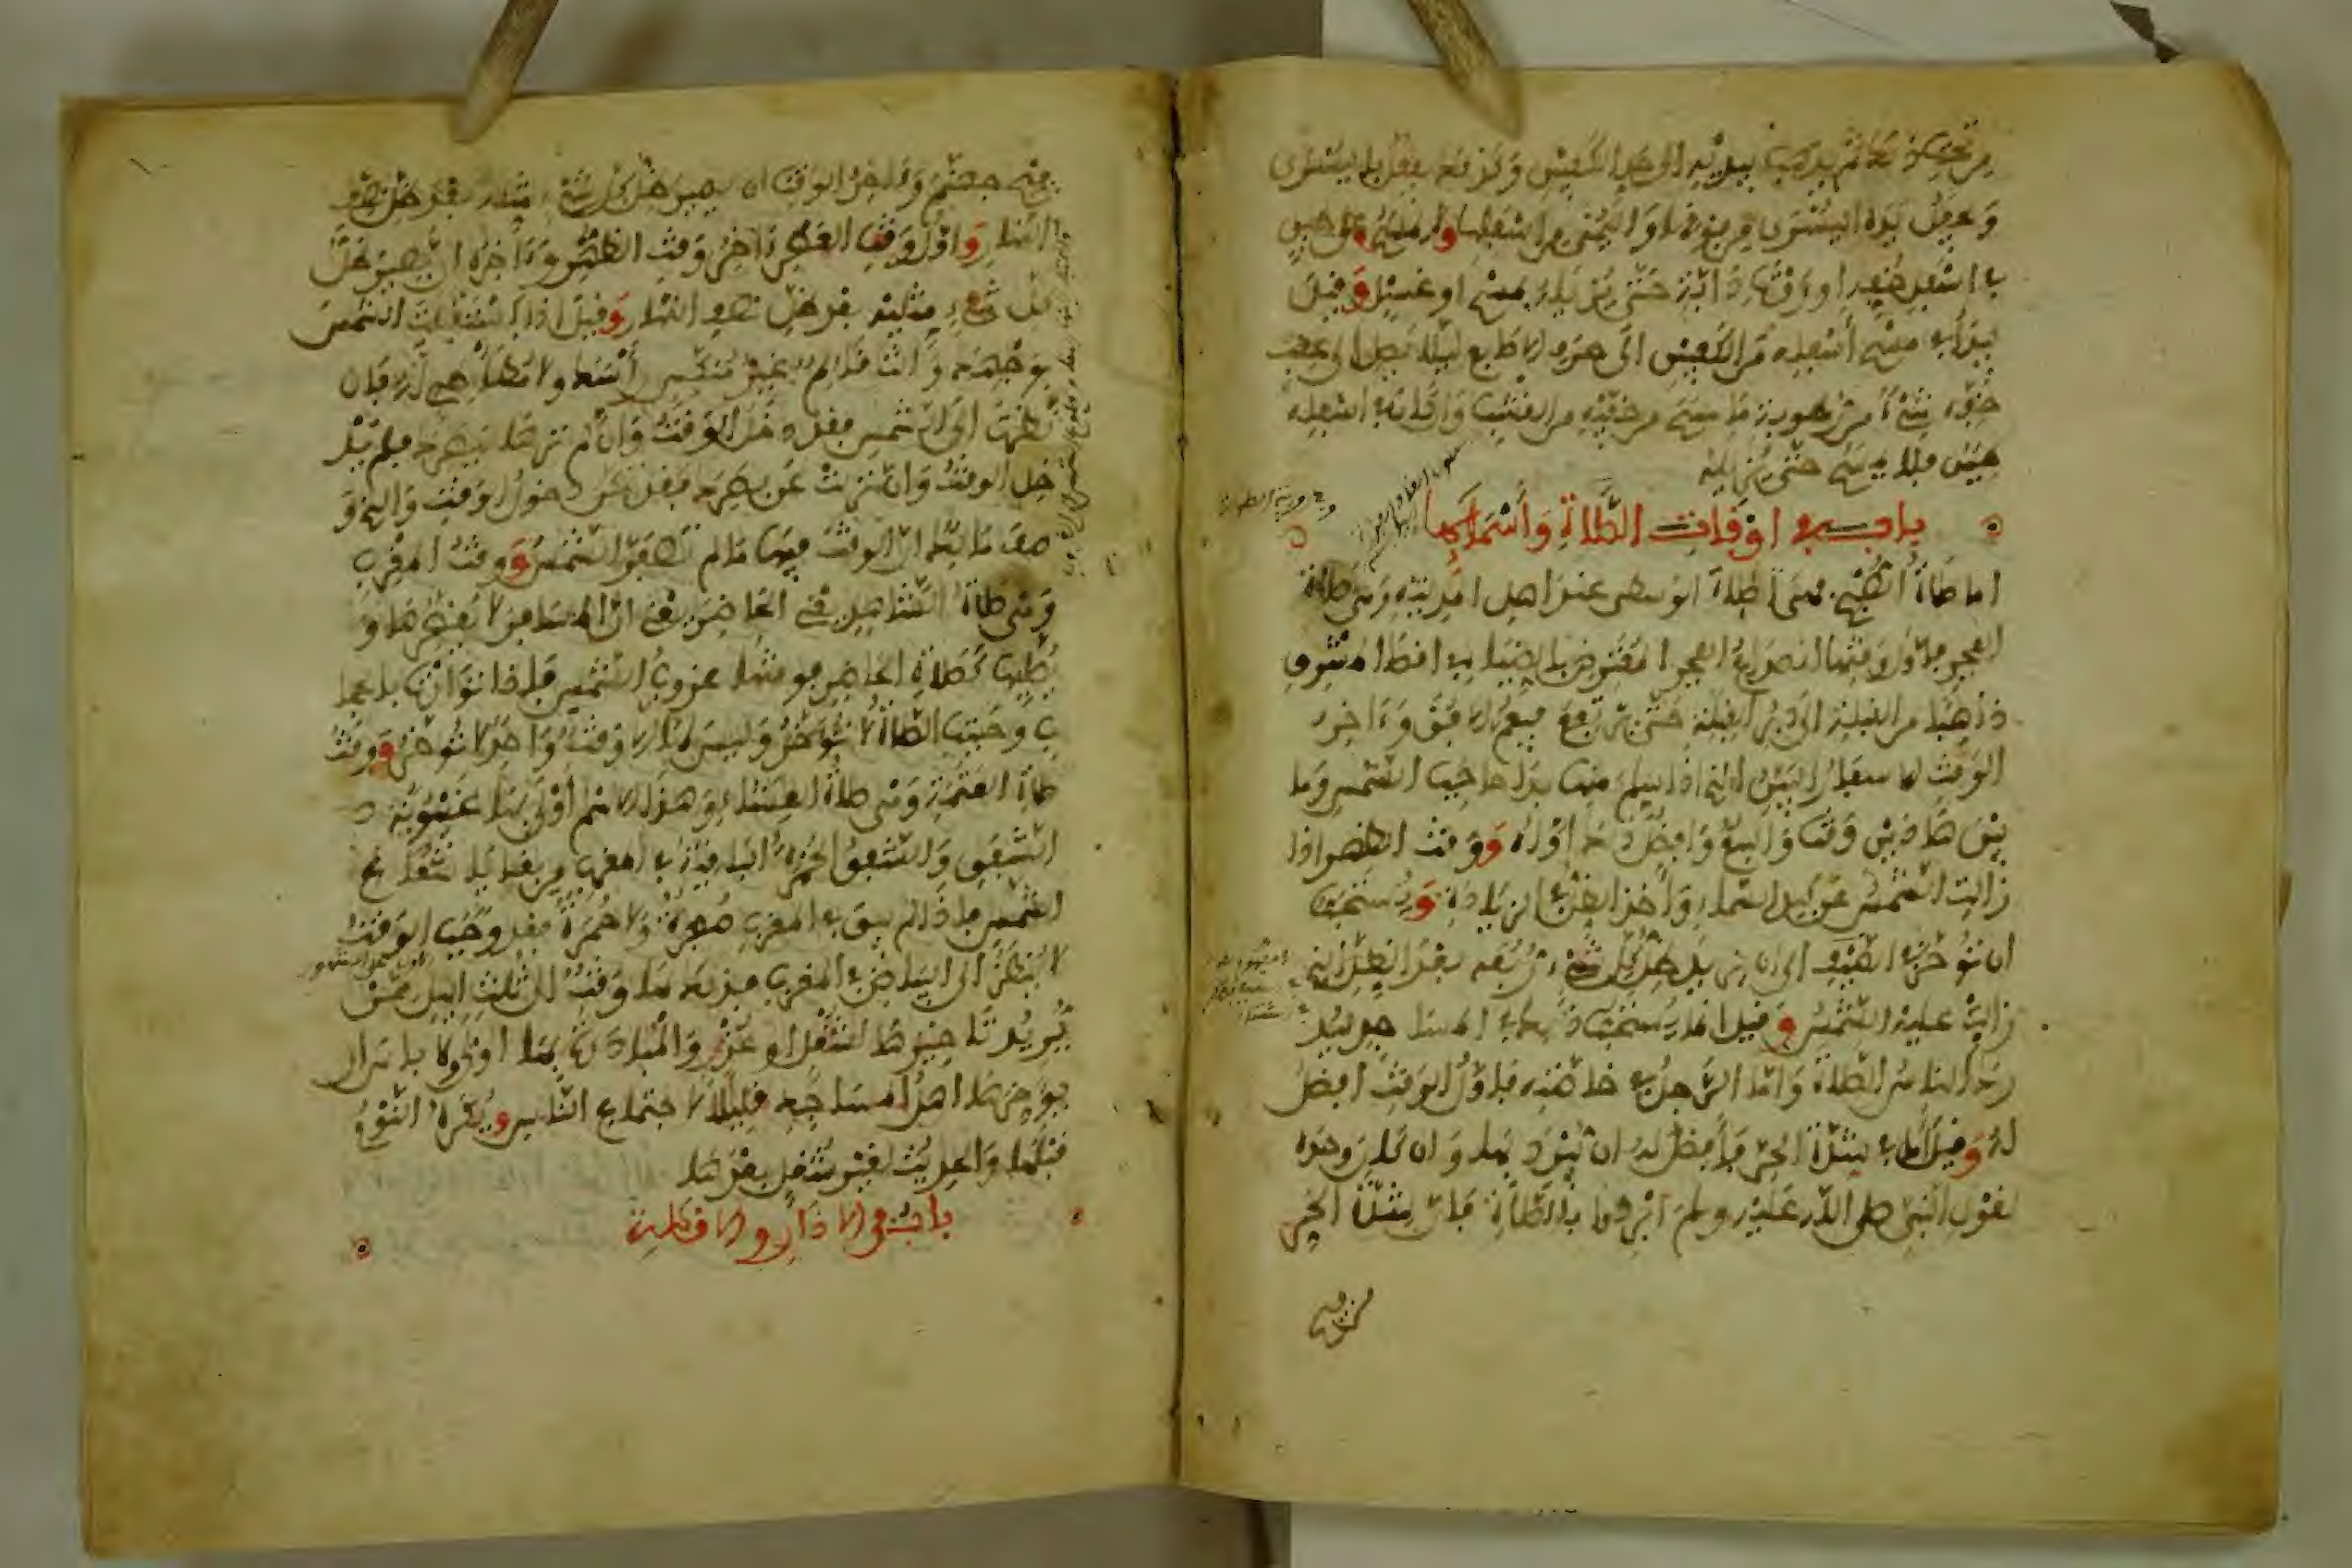 من تحت خفه ثم يذهب بيديه إلى حد الكعبين وكذلك يفعل باليسرى
ويجعل يده اليسرى من فوقها واليمنى من أسفلها ولا يمسح على طين
في أسفل خفه أو روث دابة حتى يزيله بمسح أو غسل وقيل
يبدأ في مسح أسفله من الكعبين إلى أطراف الأصابع ليلا يصل إلى عقب
خفه شيء من رطوبة ما مسح من خفيه من القشب وإن كان في أسفله
طين فلا يمسح حتى يزيله
باب في أوقات الصلاة وأسمائها
أما صلاة الصبح فهي الصلاة الوسطى عند أهل المدينة وهي صلاة
الفجر فأول وقتها انصداع الفجر المعترض بالضياء في أقصا المشرق
ذاهبا من القبلة إلى دبر القبلة حتى يرتفع فيعم الأفق وءاخر
الوقت الإسفار البين الذي إذا سلم منها بدا حاجب الشمس وما
بين هاذين وقت واسع وأفضل ذلك أوله ووقت الظهر إذا
زالت الشمس عن كبد السماء وأخذ الظل في الزيادة ويستحب
أن تؤخر في الصيف إلى أن يزيد ظل كل شيء ربعه بعد الظل الذي
زالت عليه الشمس وقيل إنما يستحب ذلك في المساجد ليد
رك الناس الصلاة وأما الرجل في خاصته فأول الوقت أفضل
له وقيل أما في شدة الحر فالأفضل له أن يبرد بها وإن كان وحده
لقول النبي صلى الله عليه وسلم أبردوا بالصلاة فإن شدة الحر
من فيح
من فيح جهنم وءاخر الوقت أن يصير ظل كل شيء مثله بعد ظل نصف
النهار وأول وقت العصر ءاخر وقت الظهر وءاخره أن يصير ظل
كل شيء مثليه بعد ظل نصف النهار وقيل إذا استقبلت الشمس
بوجهك وأنت قائم غير منكس رأسك ولا مطأطئ له فإن
نظرت إلى الشمس فقد دخل الوقت وإن لم ترها ببصرك فلم يد
خل الوقت وإن نزلت عن بصرك فقد تمكن دخول الوقت والذي و
صف مالك أن الوقت فيها ما لم تصفر الشمس ووقت المغرب
وهي صلاة الشاهد يعني الحاضر يعني أن المسافر لا يقصرها و
يصليها كصلاة الحاضر فوقتها غروب الشمس فإذا توارت بالحجا
ب وجبت الصلاة لا تؤخر وليس لها إلا وقت واحد لا تؤخر ووقت
صلاة العتمة وهي صلاة العشاء وهذا الاسم أولى بها غيبوبة
الشفق والشفق الحمرة الباقية في المغرب من بقايا شعاع
الشمس فإذا لم يبق في المغرب صفرة ولا حمرة فقد وجب الوقت
لا ينظر إلى البياض في المغرب فذلك لها وقت إلى ثلث الليل ممن
يريد تأخيرها لشغل أو عذر والمبادرة بها أولى ولا بأس أن
يؤخرها أهل المساجد قليلا لاجتماع الناس ويكره النوم
قبلها والحديث لغير شغل بعدها
باب في الأذان والإقامة